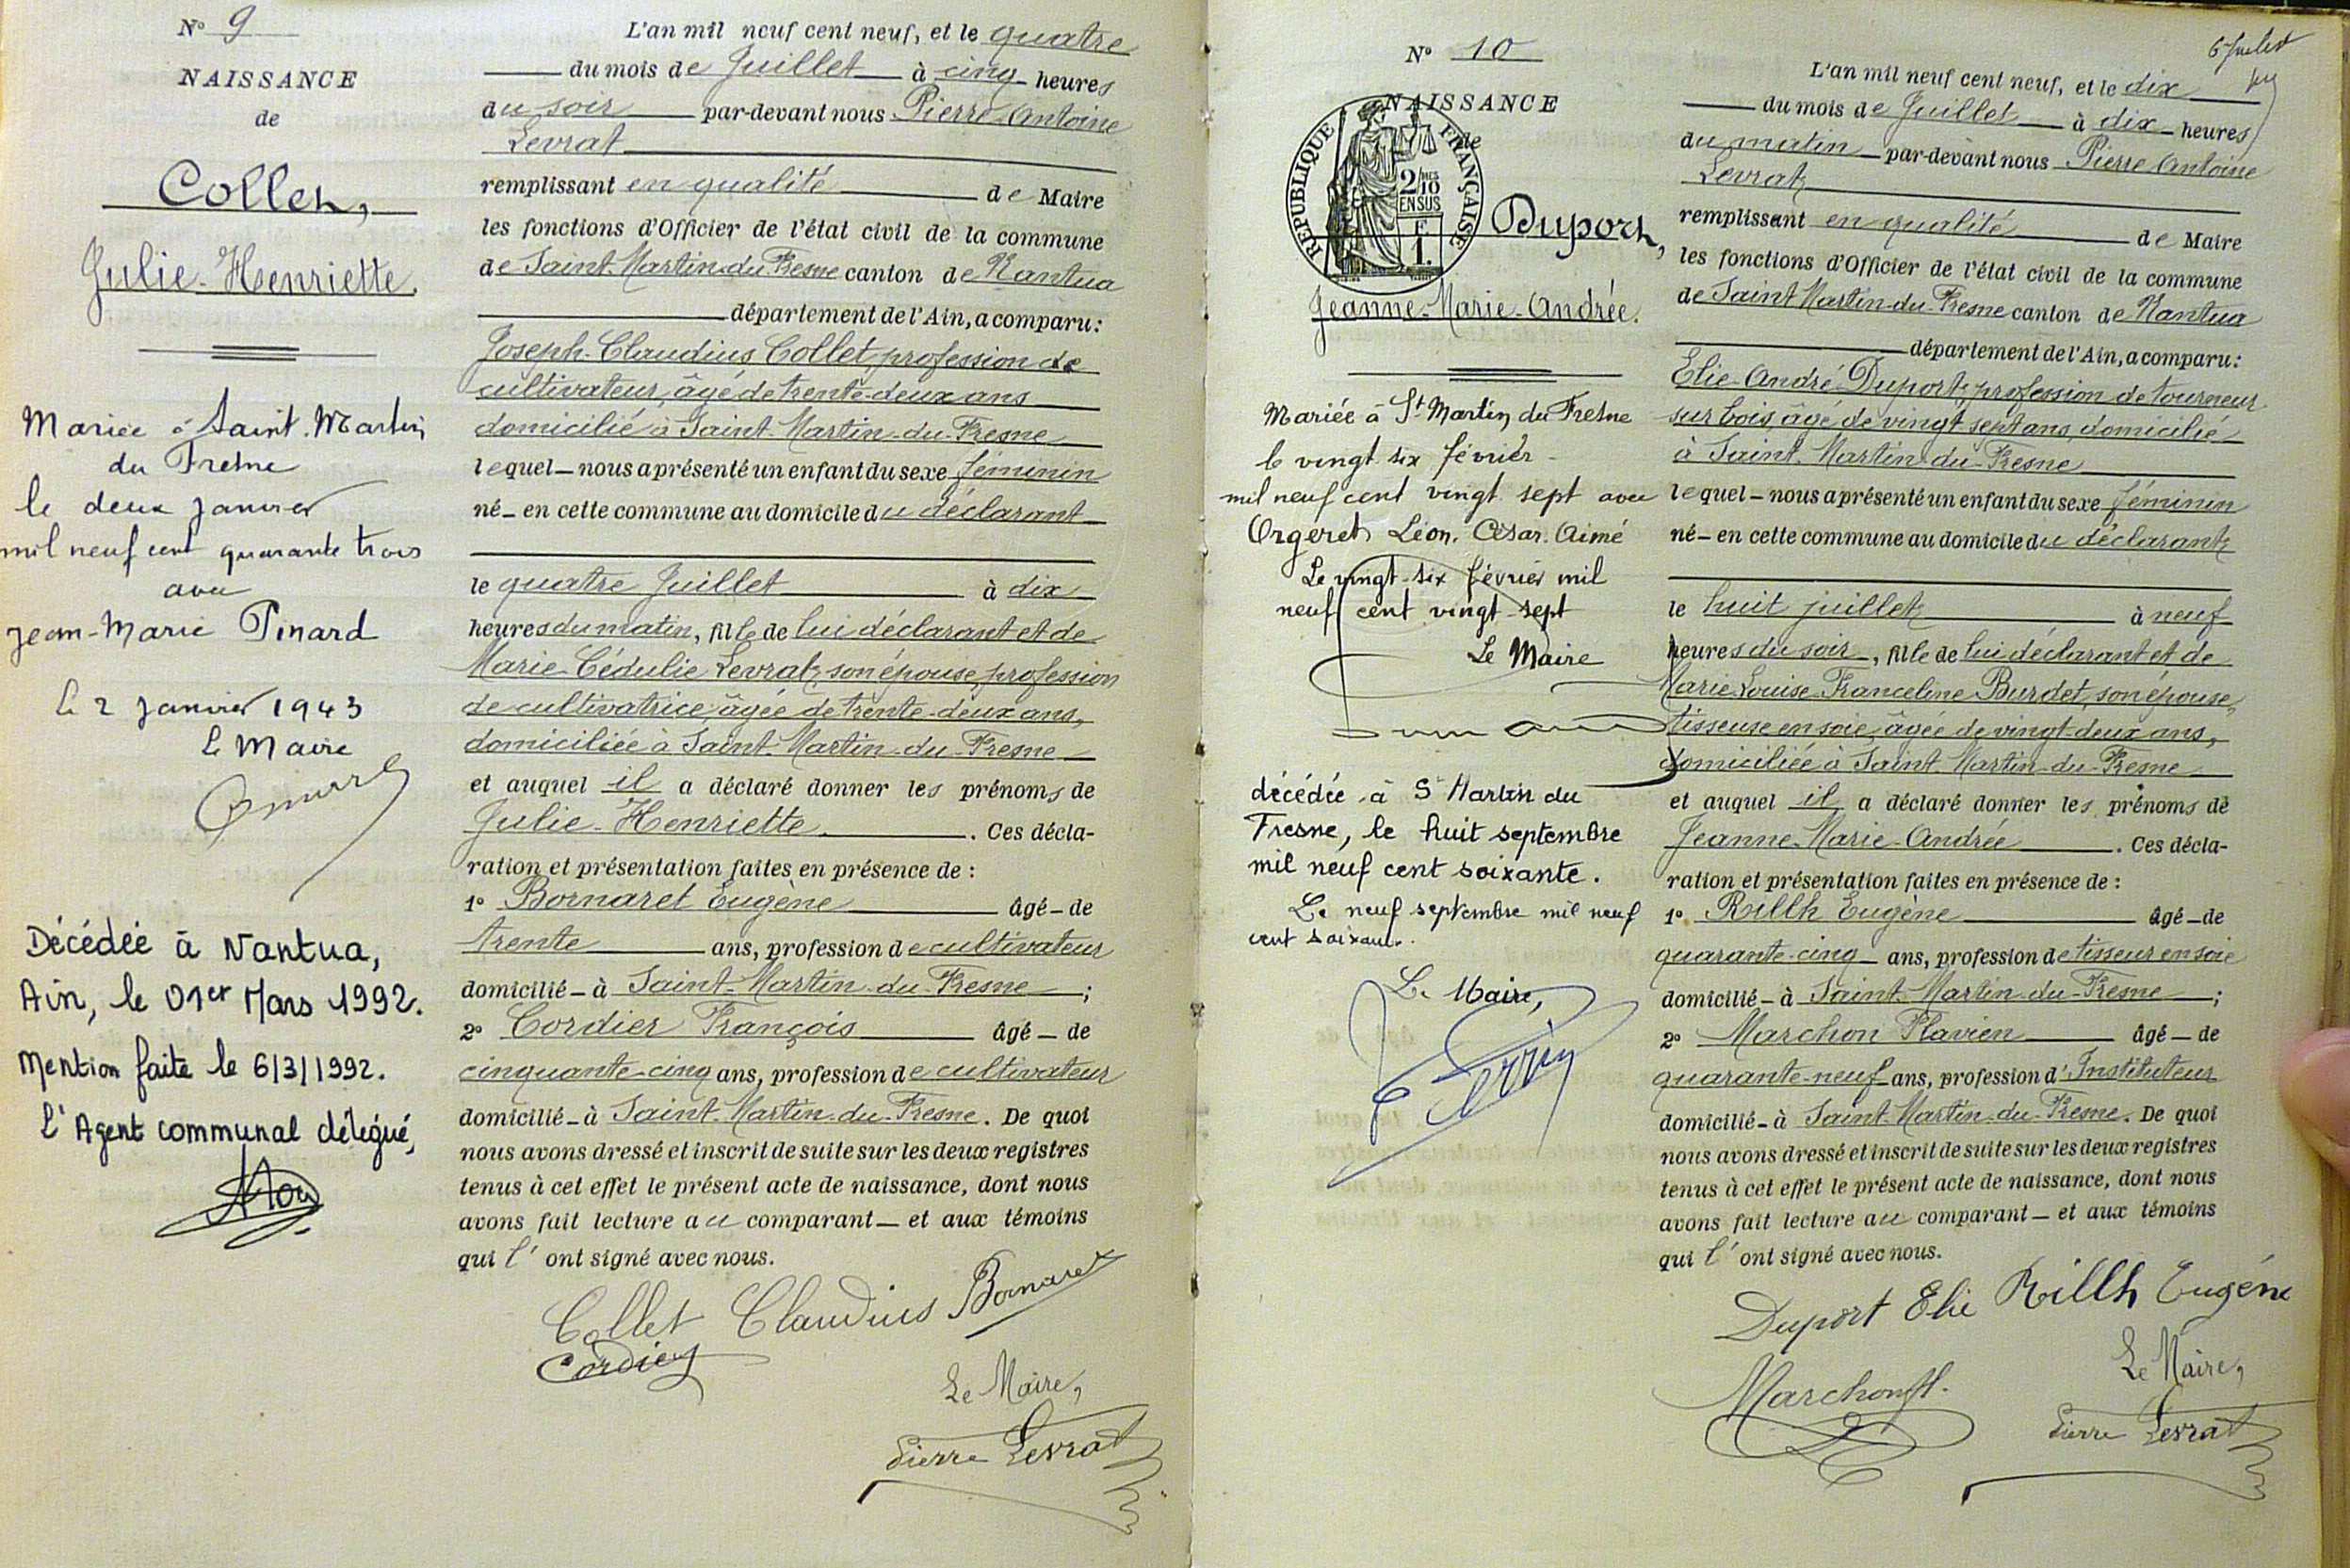 N° 9
NAISSANCE
de
Collet,
Julie-Henriette.
Mariée à Saint-Martin
du Fresne
le deux Janvier
mil neuf cent quarante trois
avec
Jean-Marie Pinard
Le 2 Janvier 1943
Le Maire
Décédée à Nantua,
Ain, le 01er Mars 1992.
Mention faite le 6/3/1992.
L'Agent communal délégué,
L'an mil neuf cent neuf, et le quatre
du mois de Juillet à cinq heures
du soir par-devant nous Pierre Antoine
Levrat
remplissant en qualité de Maire
les fonctions d'Officier de l'état civil de la commune
de Saint-Martin-du-Fresne canton de Nantua
département de l'Ain, a comparu:
Joseph-Claudius Collet, profession de
cultivateur, âgé de trente-deux ans
domicilié à Saint-Martin-du-Fresne
lequel nous a présenté un enfant du sexe féminin
né en cette commune au domicile du déclarant
le quatre Juillet à dix
heures du matin, fille de lui déclarant et de
Marie-Cédulie Levrat, son épouse, profession
de cultivatrice, âgée de trente-deux ans,
domiciliée à Saint-Martin-du-Fresne
et auquel il a déclaré donner les prénoms de
Julie-Henriette. Ces décla-
ration et présentation faites en présence de :
1° Bornaret Eugène âgé de
trente ans, profession de cultivateur
domicilié à Saint-Martin-du-Fresne ;
2° Cordier François âgé de
cinquante-cinq ans, profession de cultivateur
domicilié à Saint-Martin-du-Fresne. De quoi
nous avons dressé et inscrit de suite sur les deux registres
tenus à cet effet le présent acte de naissance, dont nous
avons fait lecture au comparant et aux témoins
qui l'ont signé avec nous.
Collet Claudius Bornaret
Cordier
Le Maire,
Pierre Levrat
N° 10
NAISSANCE
de
RÉPUBLIQUE FRANÇAISE
2/10MES
EN SUS
F
1.
Duport,
Jeanne-Marie-Andrée.
Mariée à St Martin du Fresne
le vingt six février
mil neuf cent vingt sept avec
Orgeret Léon. César. Aimé
Le vingt-six février mil
neuf cent vingt sept
Le Maire
décédée à St Martin du
Fresne, le huit septembre
mil neuf cent soixante.
Le neuf septembre mil neuf
cent soixante.
Le Maire,
6 Juillet
L'an mil neuf cent neuf, et le dix
du mois de Juillet à dix heures
du matin par-devant nous Pierre Antoine
Levrat
remplissant en qualité de Maire
les fonctions d'Officier de l'état civil de la commune
de Saint Martin-du-Fresne canton de Nantua
département de l'Ain, a comparu:
Elie-André Duport, profession de tourneur
sur bois, âgé de vingt sept ans, domicilié
à Saint-Martin-du-Fresne
lequel nous a présenté un enfant du sexe féminin
né en cette commune au domicile du déclarant
le huit juillet à neuf
heures du soir, fille de lui déclarant et de
Marie Louise Franceline Burdet, son épouse,
tisseuse en soie, âgée de vingt-deux ans,
domiciliée à Saint-Martin-du-Fresne
et auquel il a déclaré donner les prénoms de
Jeanne-Marie-Andrée. Ces décla-
ration et présentation faites en présence de :
1° Rillh Eugène âgé de
quarante-cinq ans, profession de tisseur en soie
domicilié à Saint-Martin-du-Fresne ;
2° Marchon Flavien âgé de
quarante-neuf ans, profession d'Instituteur
domicilié à Saint-Martin-du-Fresne. De quoi
nous avons dressé et inscrit de suite sur les deux registres
tenus à cet effet le présent acte de naissance, dont nous
avons fait lecture au comparant et aux témoins
qui l'ont signé avec nous.
Duport Elie Rillh Eugène
Marchon fl.
Le Maire,
Pierre Levrat